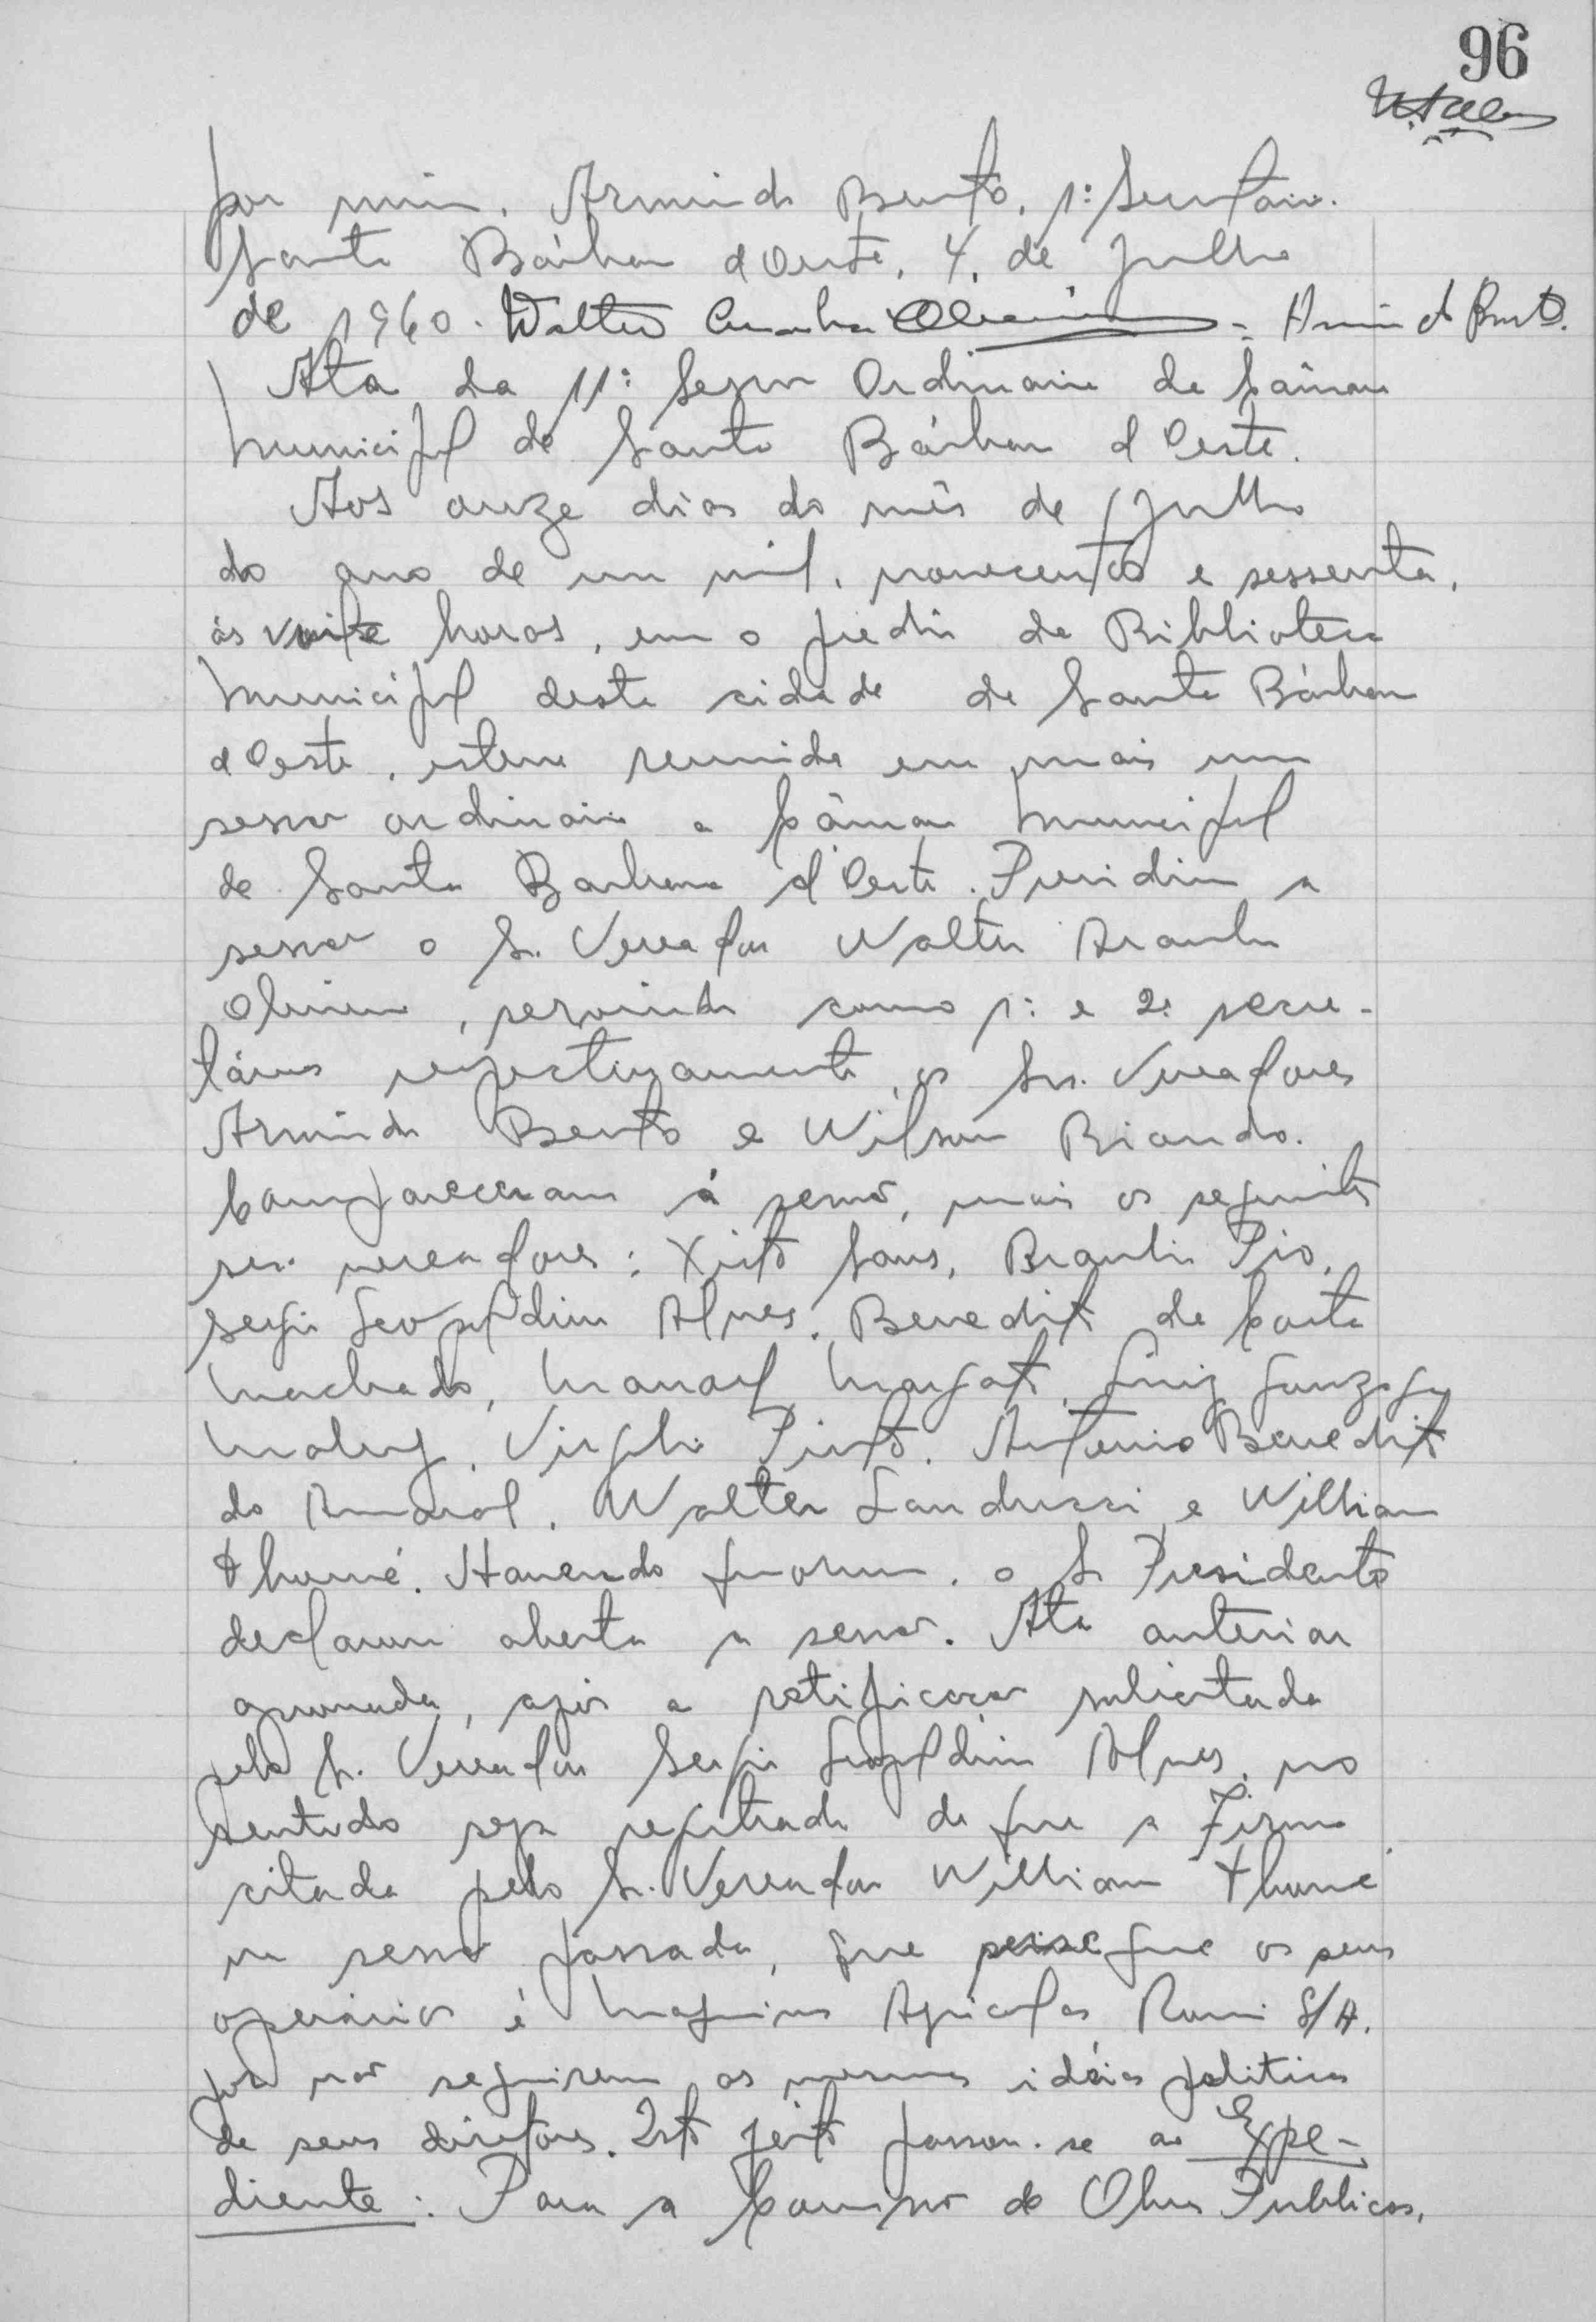 96
por mim, Armindo Bento, 1º Secretário.
Santa Bárbara d'Oeste, 4, de Julho
de 1960. Walter - Armindo Bento.
Ata da 11ª Sessão Ordinária da Câmara
Municipal de Santa Bárbara d'Oeste.
Aos onze dias do mês de Julho
do ano de um mil, novecentos e sessenta,
às vinte horas, em o prédio da Biblioteca
Municipal desta cidade de Santa Bárbara
d'Oeste, esteve reunida em mais uma
sessão ordinária a Câmara Municipal
de Santa Barbara d'Oeste. Presidiu a
sessão o Sr. Vereador Walter
Oliveira, servindo como 1º e 2º secre-
tários respectivamente, os Srs. Vereadores
Armindo Bento e Wilson
Compareceram à sessão, mais os seguintes
srs. vereadores: Xisto Braulio Pio,
Sergio Leopoldino Alves, Benedito da Costa
Machado, Luiz Gonzaga
Virgilio Pinto, Antonio Benedito
do Amaral, Walter Landucci e William
Thomé. Havendo quorum, o Sr Presidente
declarou aberta a sessão. Ata anterior
aprovada, após a retificação solicitada
pelo Sr. Vereador Sergio Leopoldino Alves, no
sentido seja registrado de que a Firma
citada pelo Sr. Vereador William Thomé
na sessão passada, que persegue os seus
operários é Maquinas Agricolas Romi S/A.
por não seguirem as mesmas idéias politicas
de seus diretores. Isto feito passou-se ao Expe-
diente: Para a Comissão de Obras Publicas,